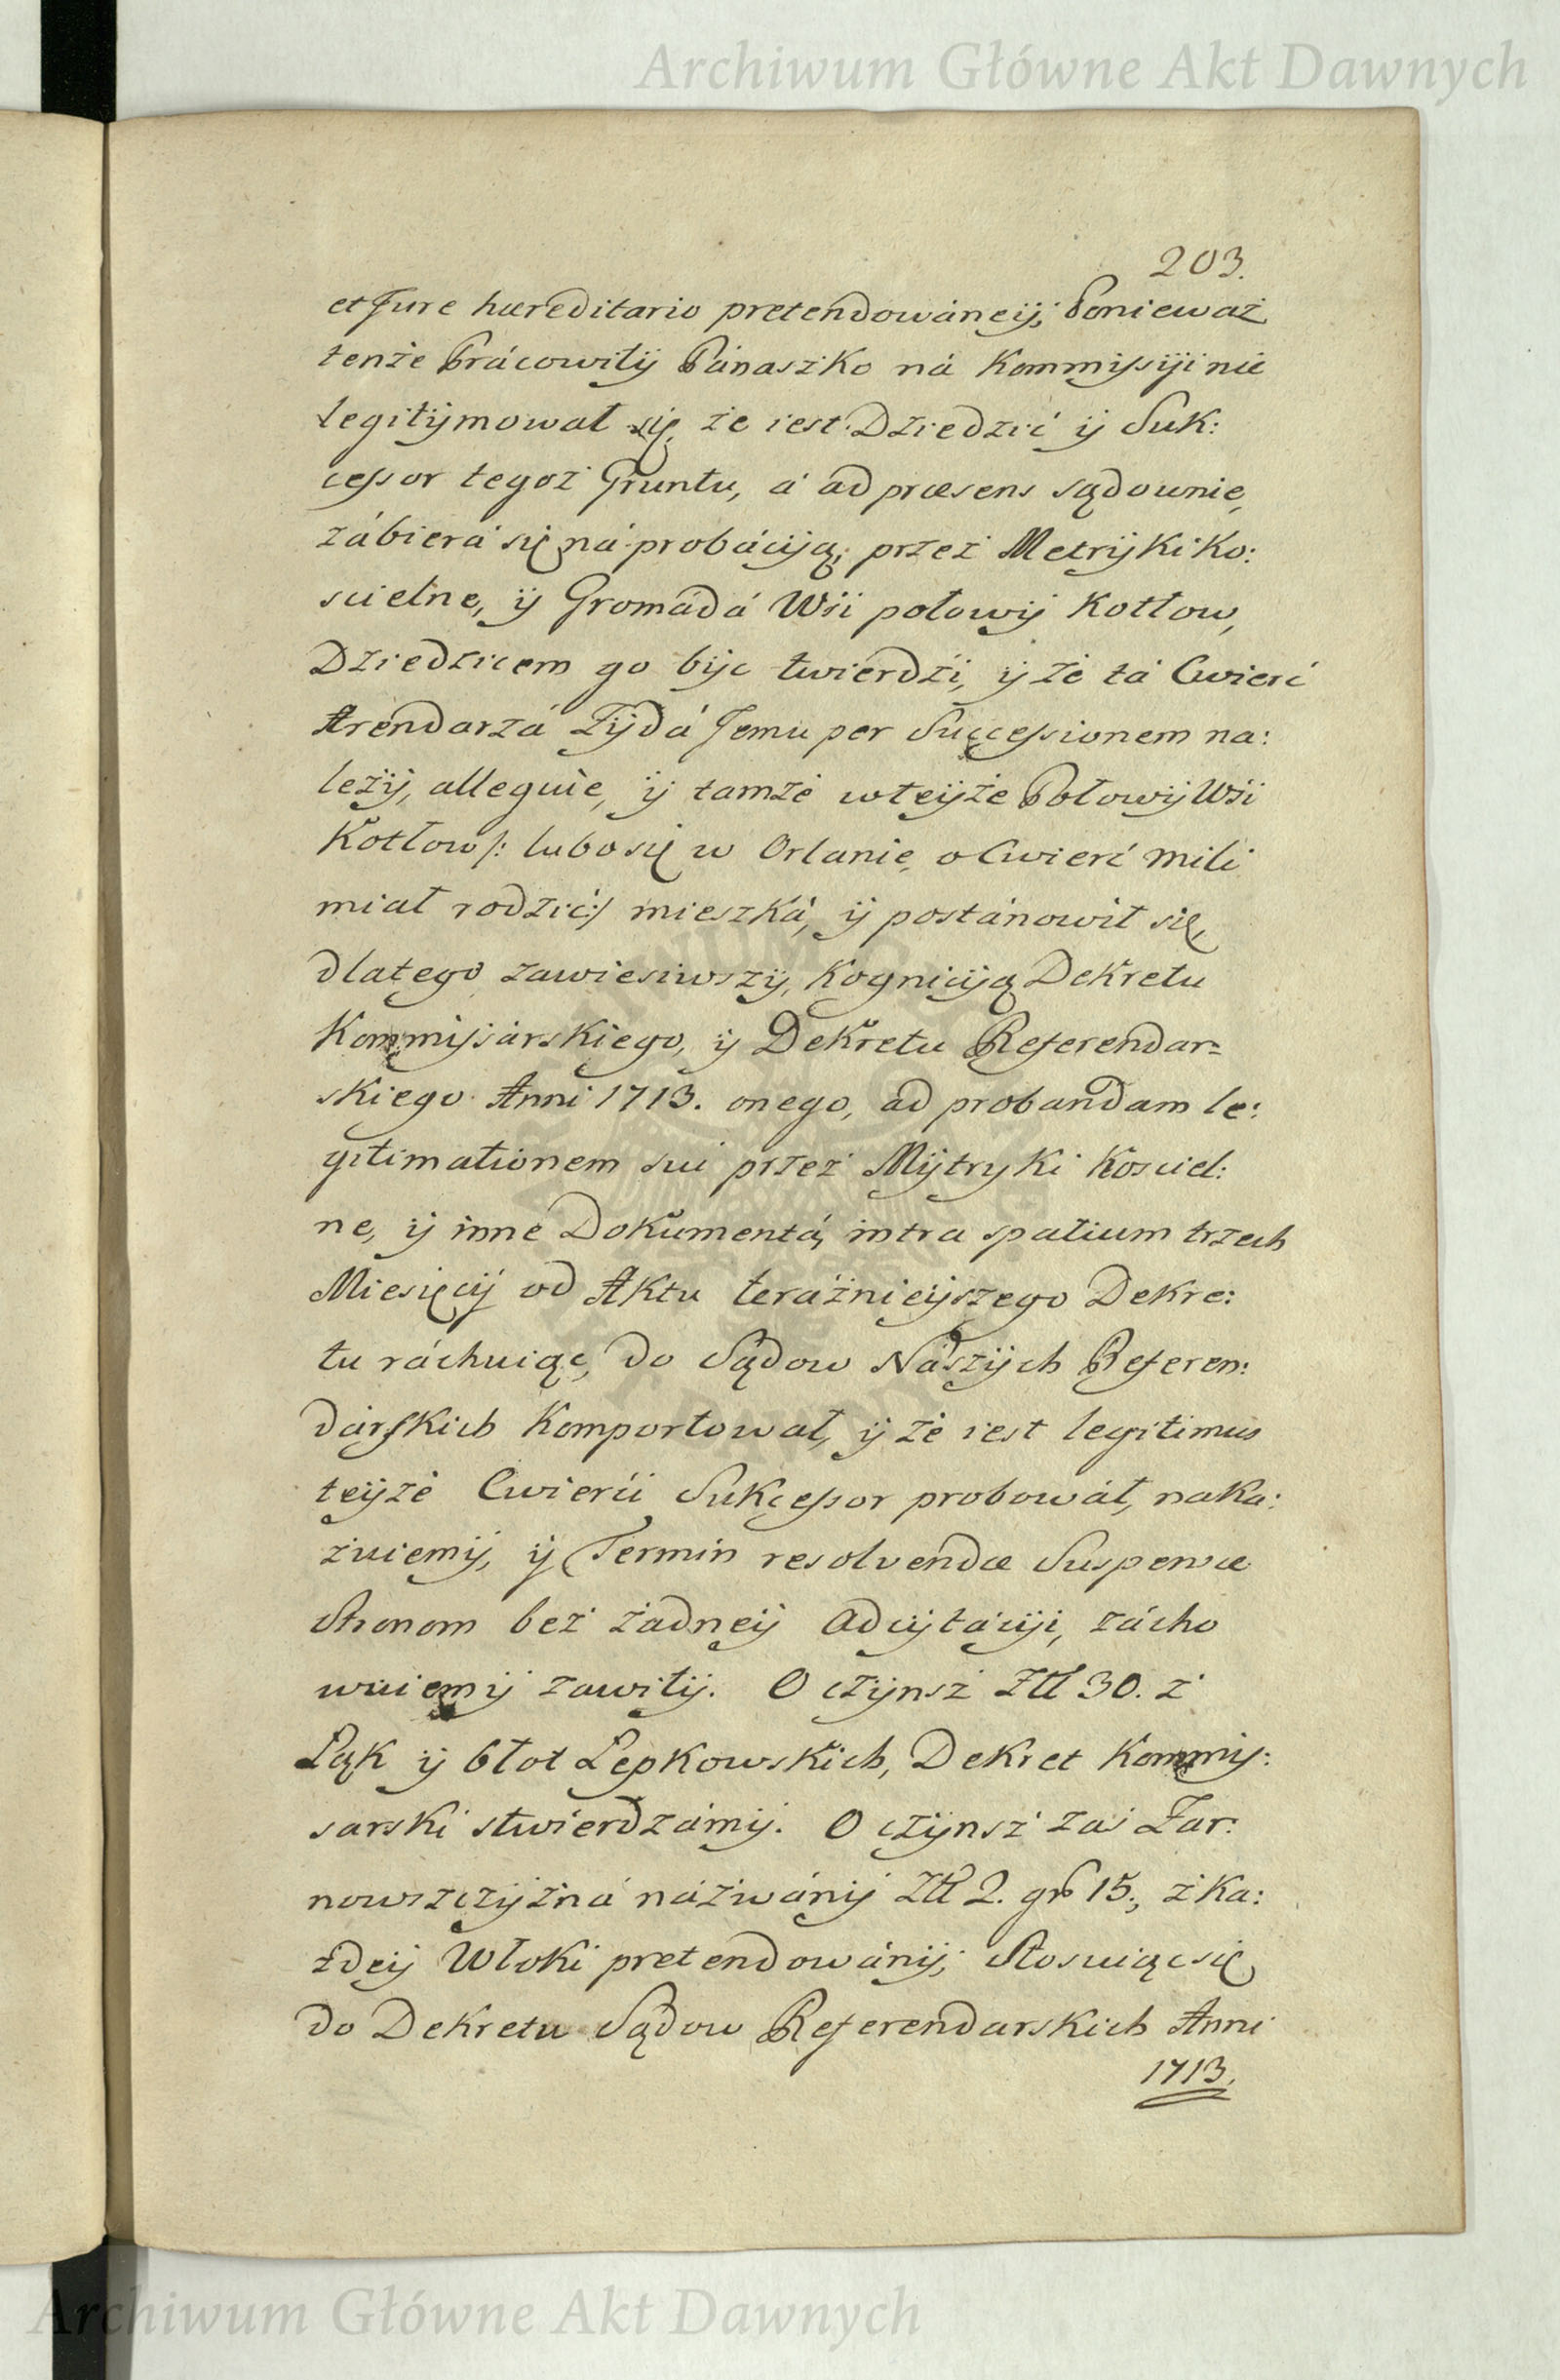 Archiwum Główne Akt Dawnych
203.
et Jure hæreditario pretendowáneÿ; Ponieważ
tenże Prácowitÿ Pánaszko ná Kommissÿi nie
legitÿmował się, że iest Dziedzić ÿ Suk:
cessor tegoż Gruntu, á ad præsens sądownie,
zábierá się ná probácÿją; przez Metrÿki Ko:
scielne, ÿ Gromádá Wśi połowÿ Kotłow,
Dziedzicem go bÿc twierdźi, ÿ że tá Cwierć
Arendarzá Zÿdá Jemu per Successionem na:
leżÿ, alleguie, ÿ tamże w teÿże Połowÿ Wśi
Kotłow /: lubo się w Orlanie o Cwierć mili
miał rodzić :/ mieszká, ÿ postánowił się,
dlatego zawiesiwszÿ, Kognicÿją Dekretu
Kommissarskiego, ÿ Dekretu Referendar=
skiego Anni 1713. onego, ad probandam le:
gitimationem sui przez Mÿtryki Kosciel:
ne, ÿ inne Dokumentá, intra spatium trzech
Miesięcÿ od Aktu teráźnieÿszego Dekre:
tu ráchuiąc, do Sądow Nászÿch Referen:
dárskich Komportował, ÿ że iest legitimus
teÿże Cwierći Sukcessor probowáł, naka:
zuiemÿ, ÿ Termin resolvendæ Suspensæ
Stronom bez żadneÿ Adcÿtácÿi, zácho
wuiemÿ zawitÿ. O czÿnsz Złł 30. z
Ląk ÿ błot Lepkowskich, Dekret Kommis:
sarski stwierdzámÿ. O czÿnsz zaś Zar:
nowszczÿzná názwánÿ Złł 2. gr 15., z ka:
żdeÿ Włoki pretendowánÿ; Stosuiąc się
do Dekretu Sądow Referendarskich Anni
1713.
Archiwum Główne Akt Dawnych